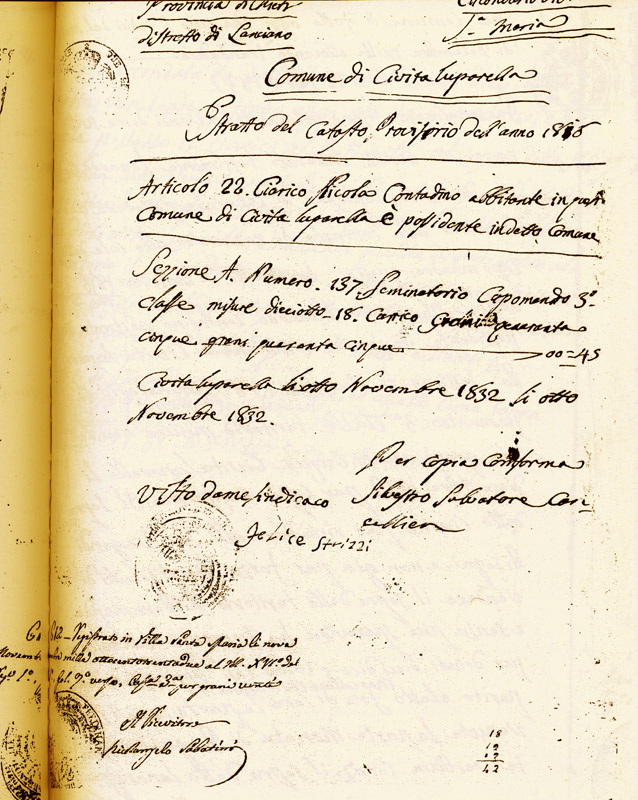 Provincia di Chieti
Circondario di
Distretto di Lanciano
S.ª Maria
Comune di Civita luparella
Estratto del Catasto Provisorio dell'anno 1816
Articolo 22. Ciarico Nicola Contadino abbitante in
Comune di Civita luparella è possidente in detto Comune
Sezzione A. Numero. 137 Seminatorio Capomando 3º
classe misure dieciotto - 18. Carrico Grani quaranta
cinque grani quaranta cinque 00=45
Civita luparella li otto Novembre 1832 li otto
Novembre 1832.
Per copia Conforma
Visto da me Sindicaco
Silvestro Salvatore Can-
cellier
Felice Strizzi
Registrato in Villa Santa Maria li nove
mille ottocento trentadue al
verso, Cas.ª 3ª per grani venti
Il Ricevitore
Sabatini
18
12
12
42